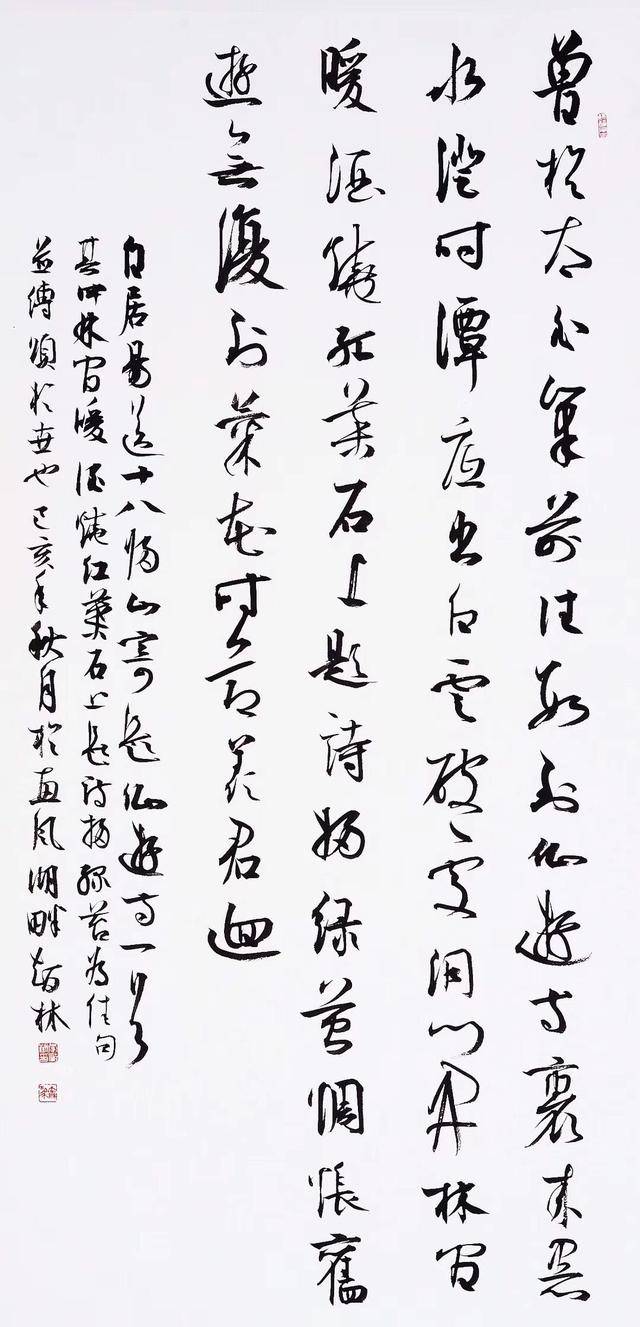 曾於太白峯前住數到仙遊寺裏來黑
水澄時潭底出白雲破處洞門開林間
暖酒燒紅葉石上題詩掃綠苔惆悵舊
遊無復到菊花時節羨君迴
白居易送十八歸山寄題仙遊寺一首
其中林間暖酒燒紅葉石上題詩掃綠苔為佳句
並傳頌於世也己亥年秋月於風湖畔林